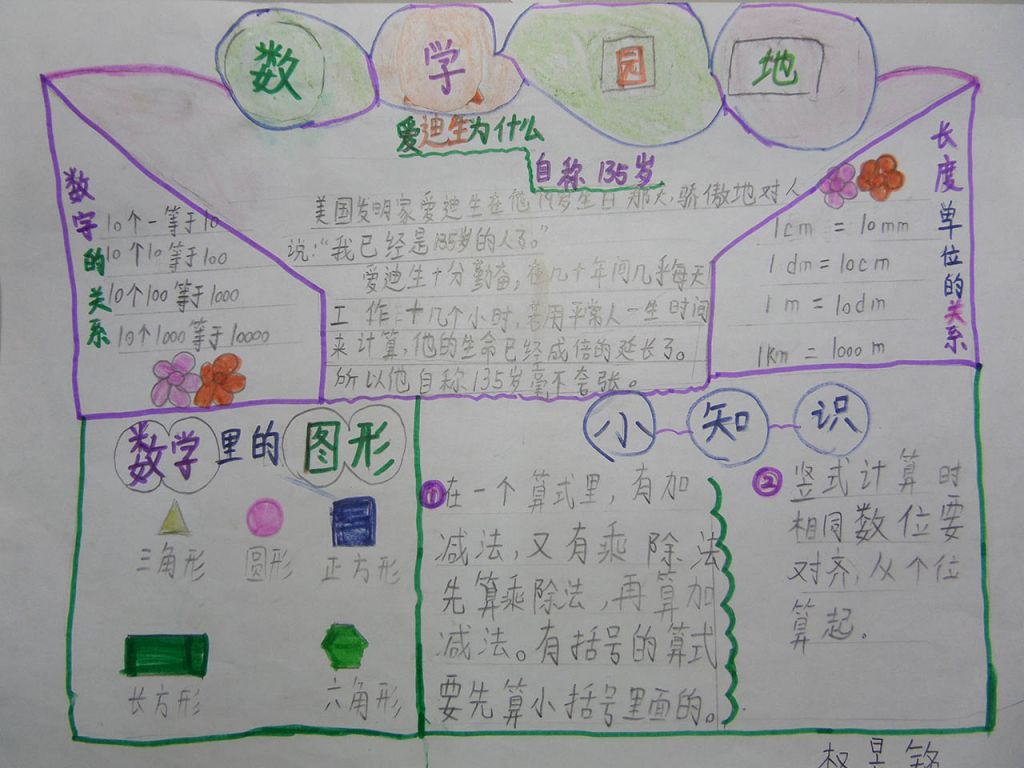 数学园地
爱迪生为什么
自称135岁
数字的关系
10个一等于10
10个10等于100
10个100等于1000
10个1000等于10000
美国发明家爱迪生在他79岁生日那天,骄傲地对人
说:“我已经是135岁的人了。”
爱迪生十分勤奋,在几十年间几乎每天
工作十几个小时,若用平常人一生时间
来计算,他的生命已经成倍的延长了。
所以他自称135岁毫不夸张。
长度单位的关系
1cm = 10mm
1dm = 10cm
1m = 10dm
1Km = 1000m
数学里的图形
三角形 圆形 正方形
长方形 六角形
小知识
①在一个算式里,有加
减法,又有乘除法
先算乘除法,再算加
减法。有括号的算式
要先算小括号里面的。
②竖式计算时
相同数位要
对齐,从个位
算起.